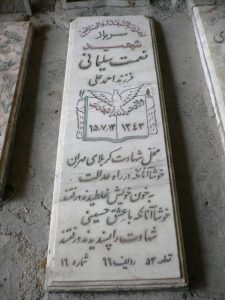 سرباز
شهید
نعمت سلیمانی
فرزند احمد علی
ولادت
۱۳۴۳
محل شهادت کربلای مهران
خوشا آنانکه در راه عدالت
به خون خویش غلطیدند و رفتند
خوشا آنانکه با عشق حسینی
شهادت را پسندیدند و رفتند
قطعه ۵۳ ردیف ۶۶ شماره ۱۶